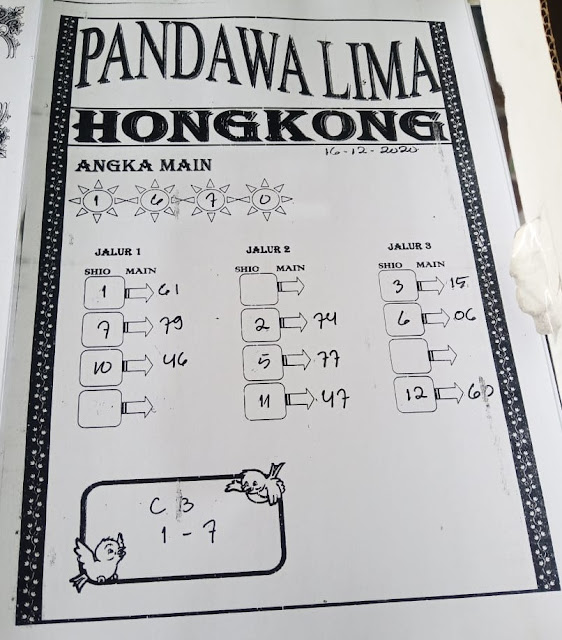 PANDAWA LIMA
HONGKONG
16-12-2020
ANGKA MAIN
1 6 7 0
JALUR 1
SHIO MAIN
1 61
7 79
10 46
JALUR 2
SHIO MAIN
2 74
5 77
11 47
JALUR 3
SHIO MAIN
3 15
6 06
12 60
C 3
1 - 7